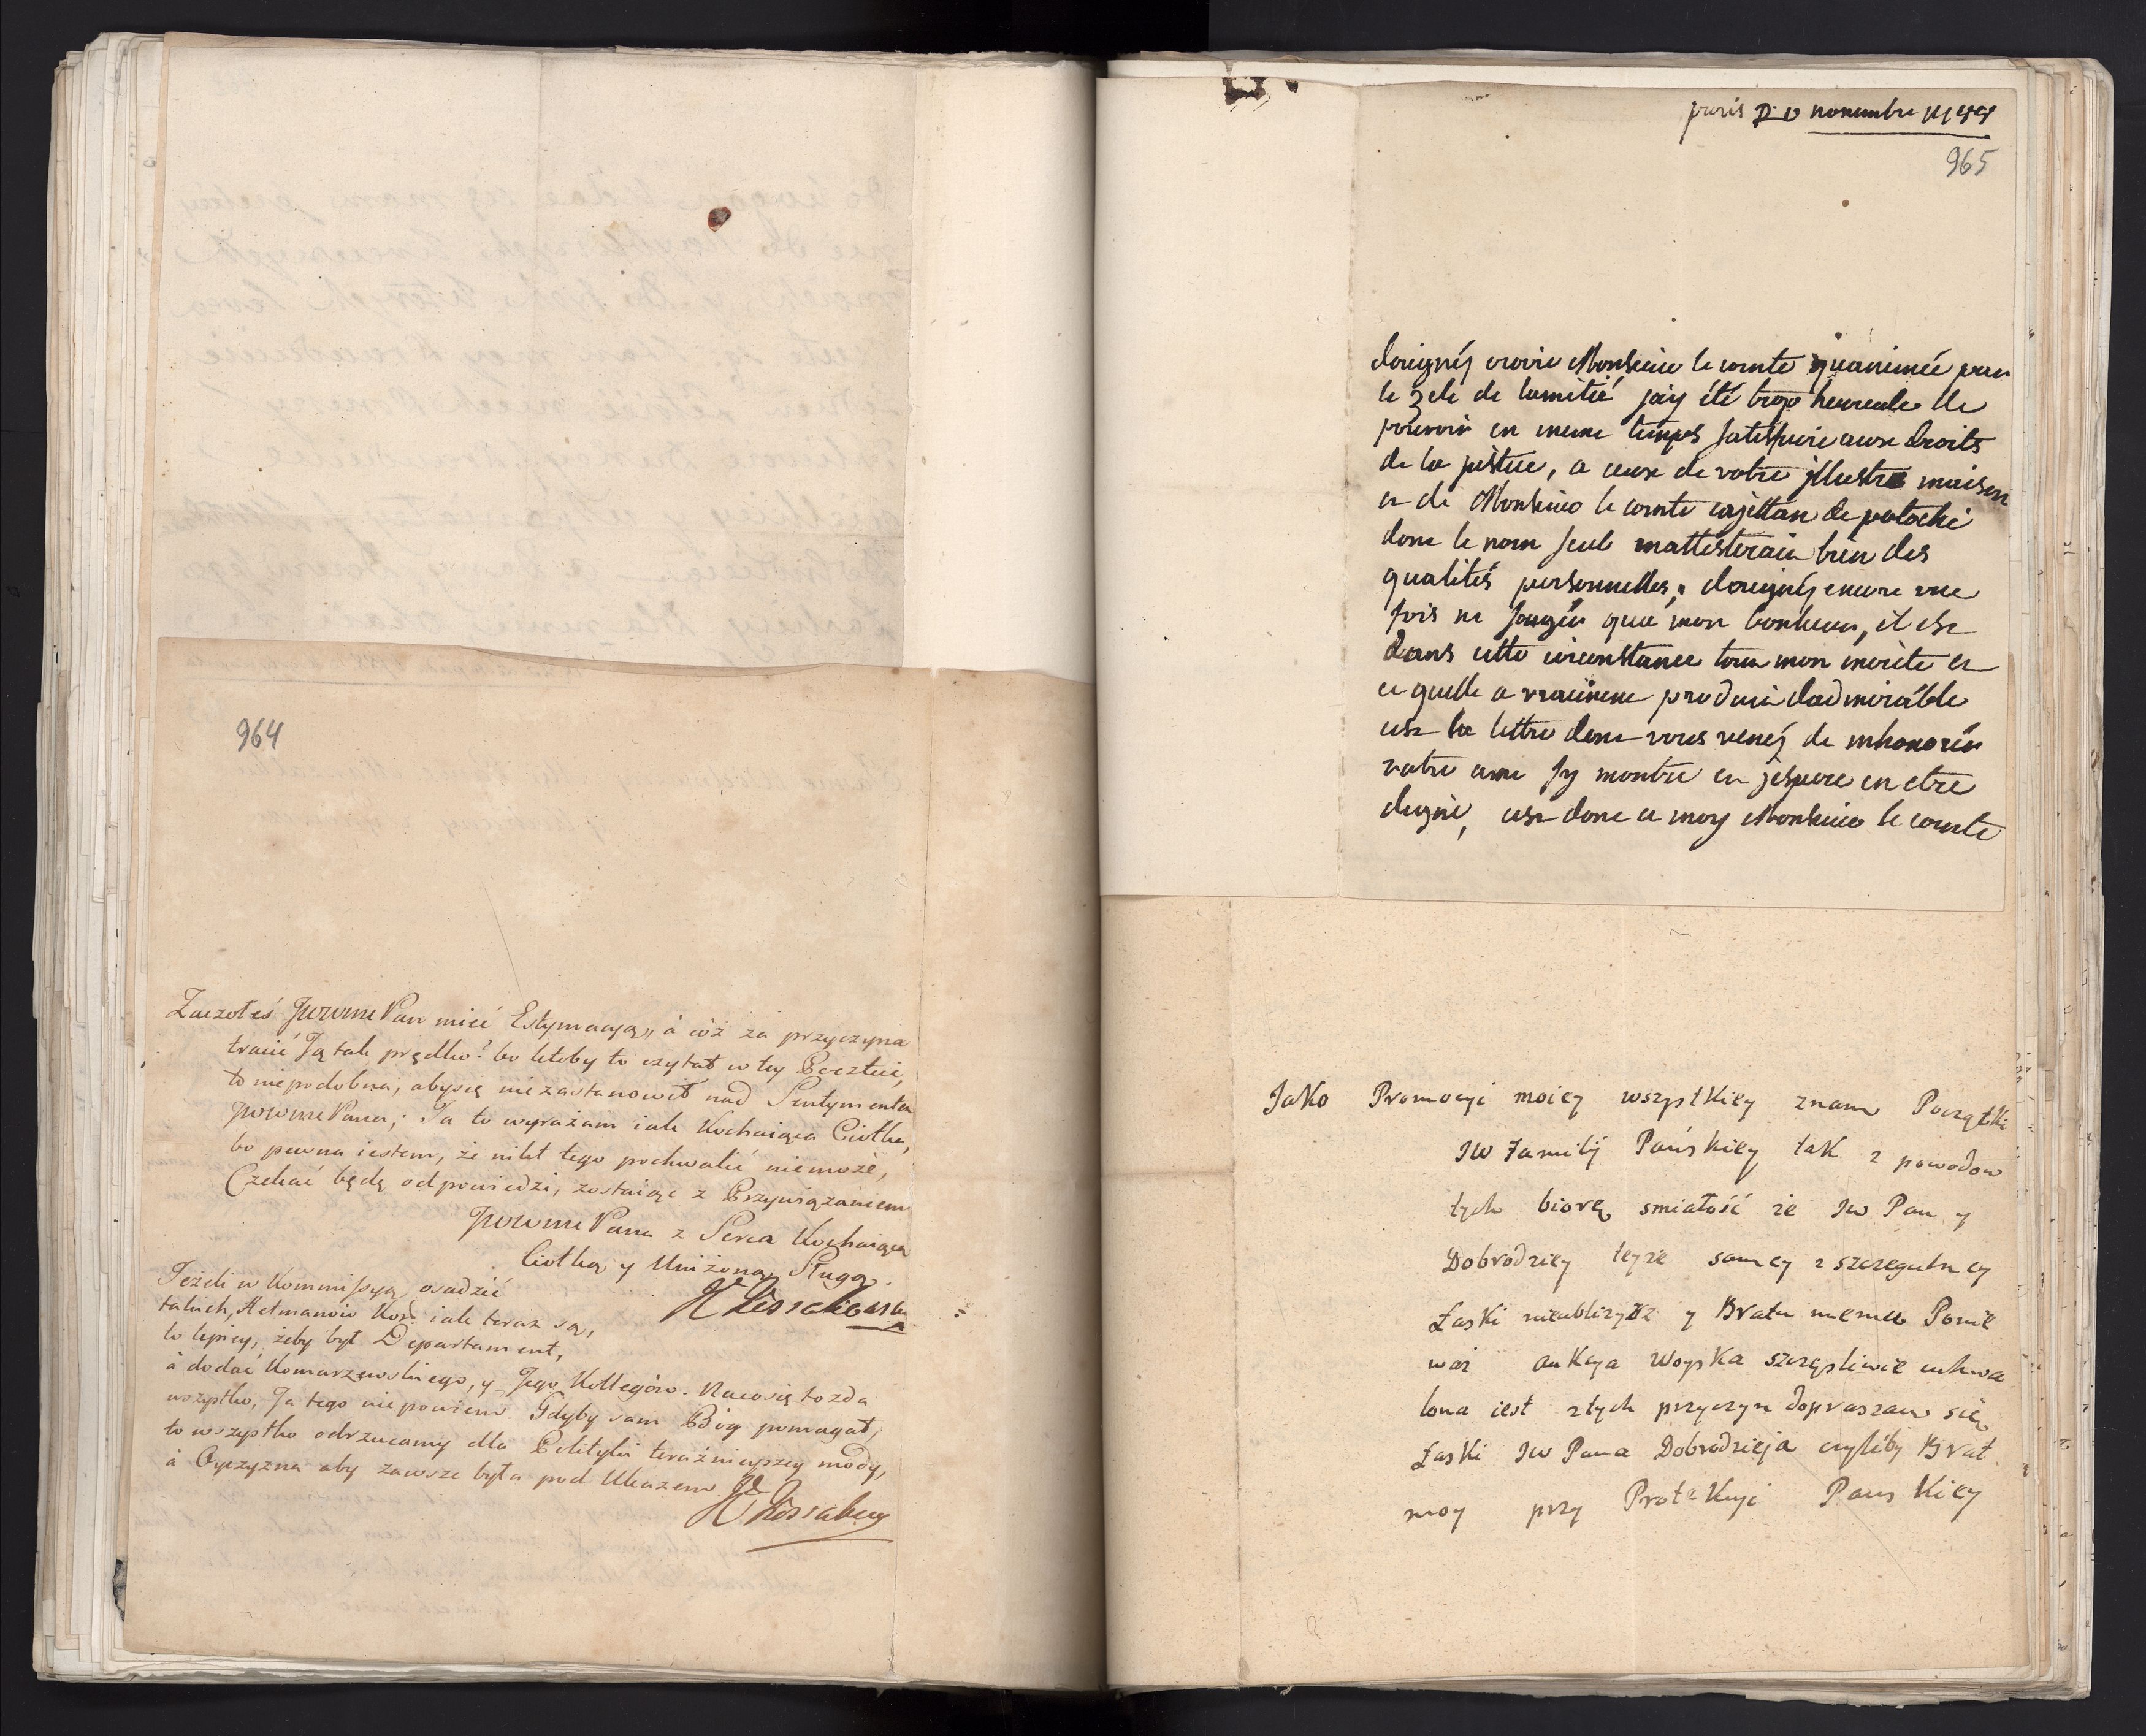 964
Zaczołeś JWWMPan mieć Estymacyą, à cóż za przyczyna
tracić Ją tak prędko? bo ktoby to czytał w tey Kartce,
to niepodobna, abysię niezastanowił nad Sentymentem
JWWMPana; Ja to wyrażam iak Kochaiąca Ciotka,
bo pewna iestem, że nikt tego pochwalić niemoże,
Czekać będę odpowiedzi, zostaiąc z Przywiązaniem
JWWMPana z Serca Kochaiącą
Ciotką y Uniżoną Sługą.
Jeżeli w Kommissyą osadzić
takich, Hetmanów iak teraz są,
to lepiey, żeby był Departament,
à dodać Komarzewskiego, y Jego Kollegów. Nacosię to zda
wszystko, Ja tego niepowiem. Gdyby sam Bóg pomagał,
to wszystko odrzucamy dla Polityki teraźnieyszey mody,
à Oyczyzna aby zawsze była pod Ukazem.
paris novembre
965
daignés croire Monsieur le comte quanimée par
le zele de lamitié jay été trop heureuse de
pouvoir en meme temps satisfaire aux droits
de la justice, a ceux de votre jllustre maison
et de Monsieur le comte cajettan de potocki
dont le nom seul mattesterait bien des
qualités personnelles, daignés encore une
fois ne songér qua mon bonheur, il est
dans cette circonstance tout mon mérite et
ce quelle a vraiment produit dadmirable
est la lettre dont vous venés de mhonorér
votre ame sy montre et jespere en etre
digne, cest donc a moy Monsieur le comte
JaKo Promocyi moiey wszystKiey znam PoczątKi
JW Familij PańsKiey taK z powodow
tych biorę smiałość że JW Pan y
Dobrodziey teyże samey z szczegulney
ŁasKi nieubliżysz y Bratu memu Ponie
waż auKcya WoysKa szczęsliwie uchwa
lona iest z tych przyczyn dopraszam się
ŁasKi JW Pana Dobrodzieja czyliby Brat
moy przy ProteKcyi PansKiey